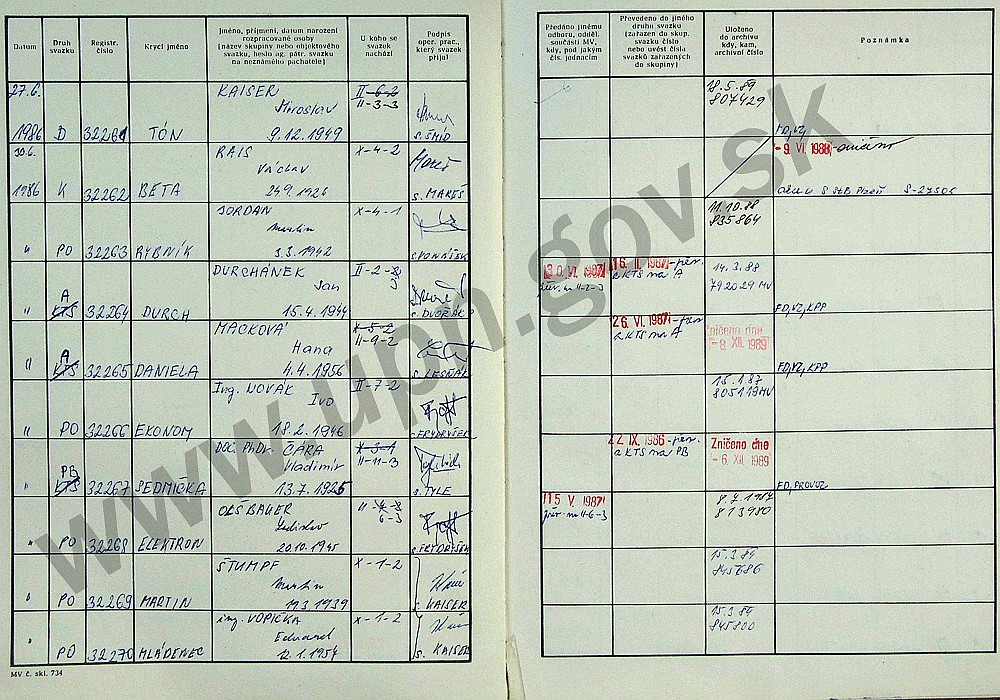 Datum
Druh
svazku
Registr.
číslo
Krycí jméno
Jméno, příjmení, datum narození
rozpracované osoby
(název skupiny nebo objektového
svazku, heslo ag. pátr. svazku
na neznámého pachatele)
U koho se
svazek
nachází
Podpis
oper. prac.,
který svazek
přijal
Předáno jinému
odboru, odděl.
součásti MV,
kdy, pod jakým
čís. jednacím
Převedeno do jiného
druhu svazku
(zařazen do skup.
svazku číslo
nebo uvést čísla
svazků zařazených
do skupiny)
Uloženo
do archivu
kdy, kam,
archivní číslo
Poznámka
27.6. KAISER II-6-2
Miroslav II-3-3
1986 D 32261 TÓN 9.12.1949 s. ŠMÍD
18.5.89
807429
FD, VZ
30.6. RAIS X-4-2
Václav
1986 K 32262 BETA 24.9.1926 s. MAREŠ
- 9. VI. 1988
JORDAN X-4-1
Martin
" PO 32263 RYBNÍK 3.3.1942
11.10.88
835864
DURCHÁNEK II-2-3
A Jan
" KTS 32264 DURCH 15.4.1944 s. DVOŘÁK
30. VI. 1987 16. II. 1987 - přev.
z KTS na A
14.3.88
792029 MV
FD, VZ, KPP
MACKOVÁ X-5-2
A Hana II-9-2
" KTS 32265 DANIELA 4.4.1956 s. LESŇÁK
26. VI. 1987 - přev.
z KTS na A
Zničeno dne
- 8. XII. 1989
FD, VZ, KPP
Ing. NOVÁK II-7-2
Ivo
" PO 32266 EKONOM 18.2.1946 s. FRYDRYŠEK
15.1.87
805119 MV
DOC. PhDr. ČÁRA X-3-1
PB Vladimír II-11-3
" KTS 32267 SEDMIČKA 13.7.1925 s. TYLE
22. IX. 1986 - přev.
z KTS na PB
Zničeno dne
- 6. XII. 1989
FD, PROVOZ
OLŠBAUER
Ladislav 6-3
" PO 32268 ELEKTRON 20.10.1945 s. FRYDRYŠEK
15. V. 1987
přev. na II-6-3
813980
ŠTUMPF X-1-2
Martin
" PO 32269 MARTIN 11.3.1939 s. KAISER
15.3.89
845686
ing. VOPIČKA X-1-2
Eduard
" PO 32270 MLÁDENEC 12.1.1954 s. KAISER
15.3.89
845800
MV č. skl. 734
www.upn.gov.sk